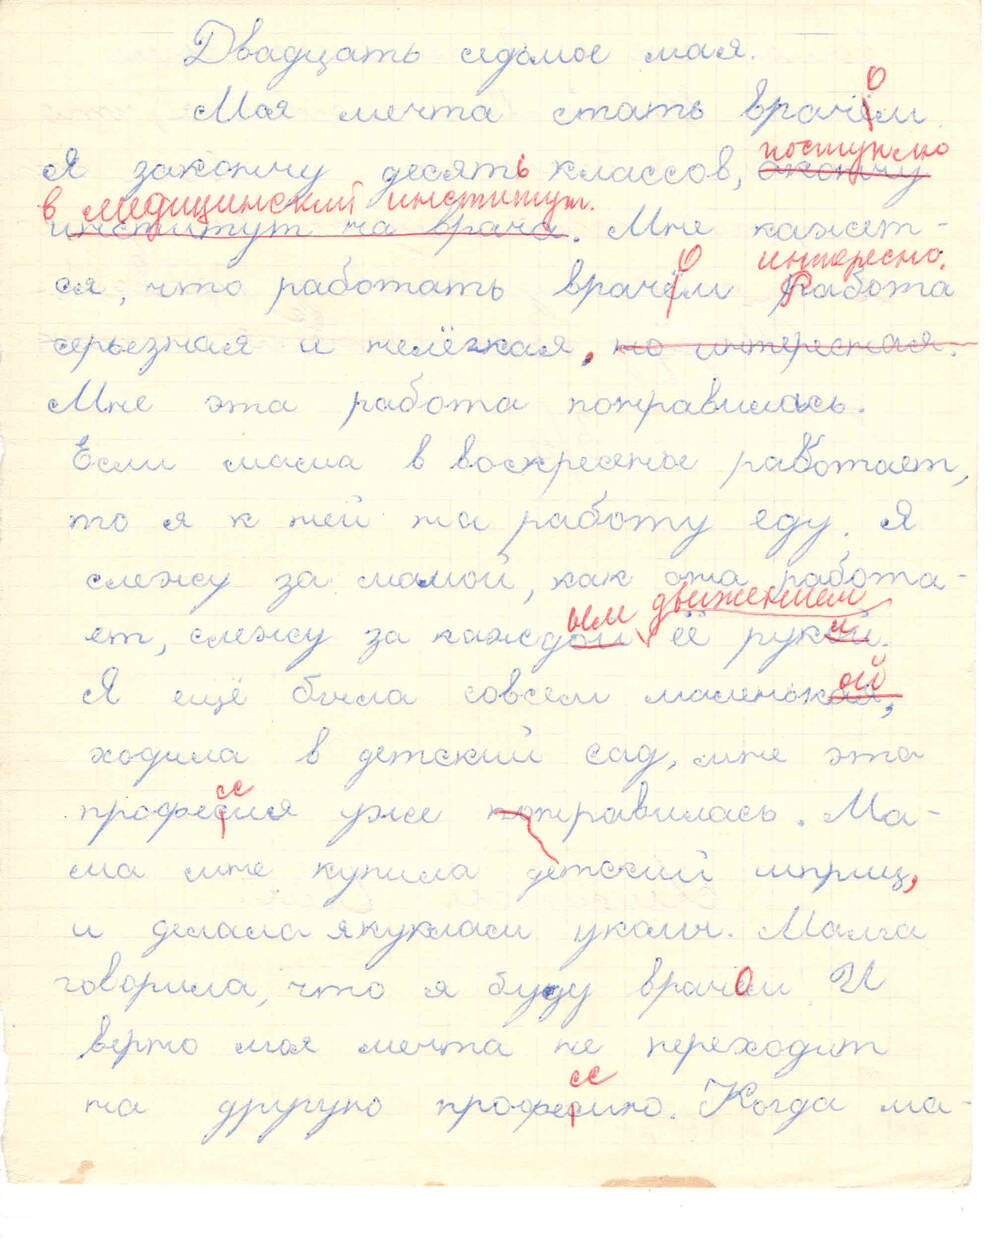 Двадцать седьмое мая.
о
Моя мечта стать врачём.
поступлю
Я закончу десять классов, окончу
в медицинский институт.
институт на врача. Мне кажет-
о интересно.
ся, что работать врачём Работа
серьезная и нелёгкая, но интересная.
Мне эта работа понравилась.
Если мама в воскресенье работает,
то я к ней на работу еду. Я
слежу за мамой, как она работа-
ым движением
ет, слежу за каждой её рукой.
и
ой
Я ещё была совсем маленькая,
ходила в детский сад, мне эта
сс
професия уже понравилась. Ма-
ма мне купила детский шприц,
и делала я куклам уколы. Мама
говорила, что я буду врачом. И
верно моя мечта не переходит
сс
на другую професию. Когда ма-